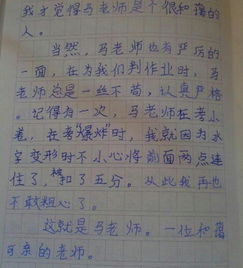 我才觉得马老师是个很和蔼的
人。
当然,马老师也有严厉的
一面,在为我们判作业时,马
老师总是一丝不苟,认真严格
。记得有一次,马老师在考小
卷,在考"爆炸"时,我就因为水
字变形时不小心将前面两点连
住了,被扣了五分。从此我再也
不敢粗心了。
这就是马老师。一位和蔼
可亲的老师。